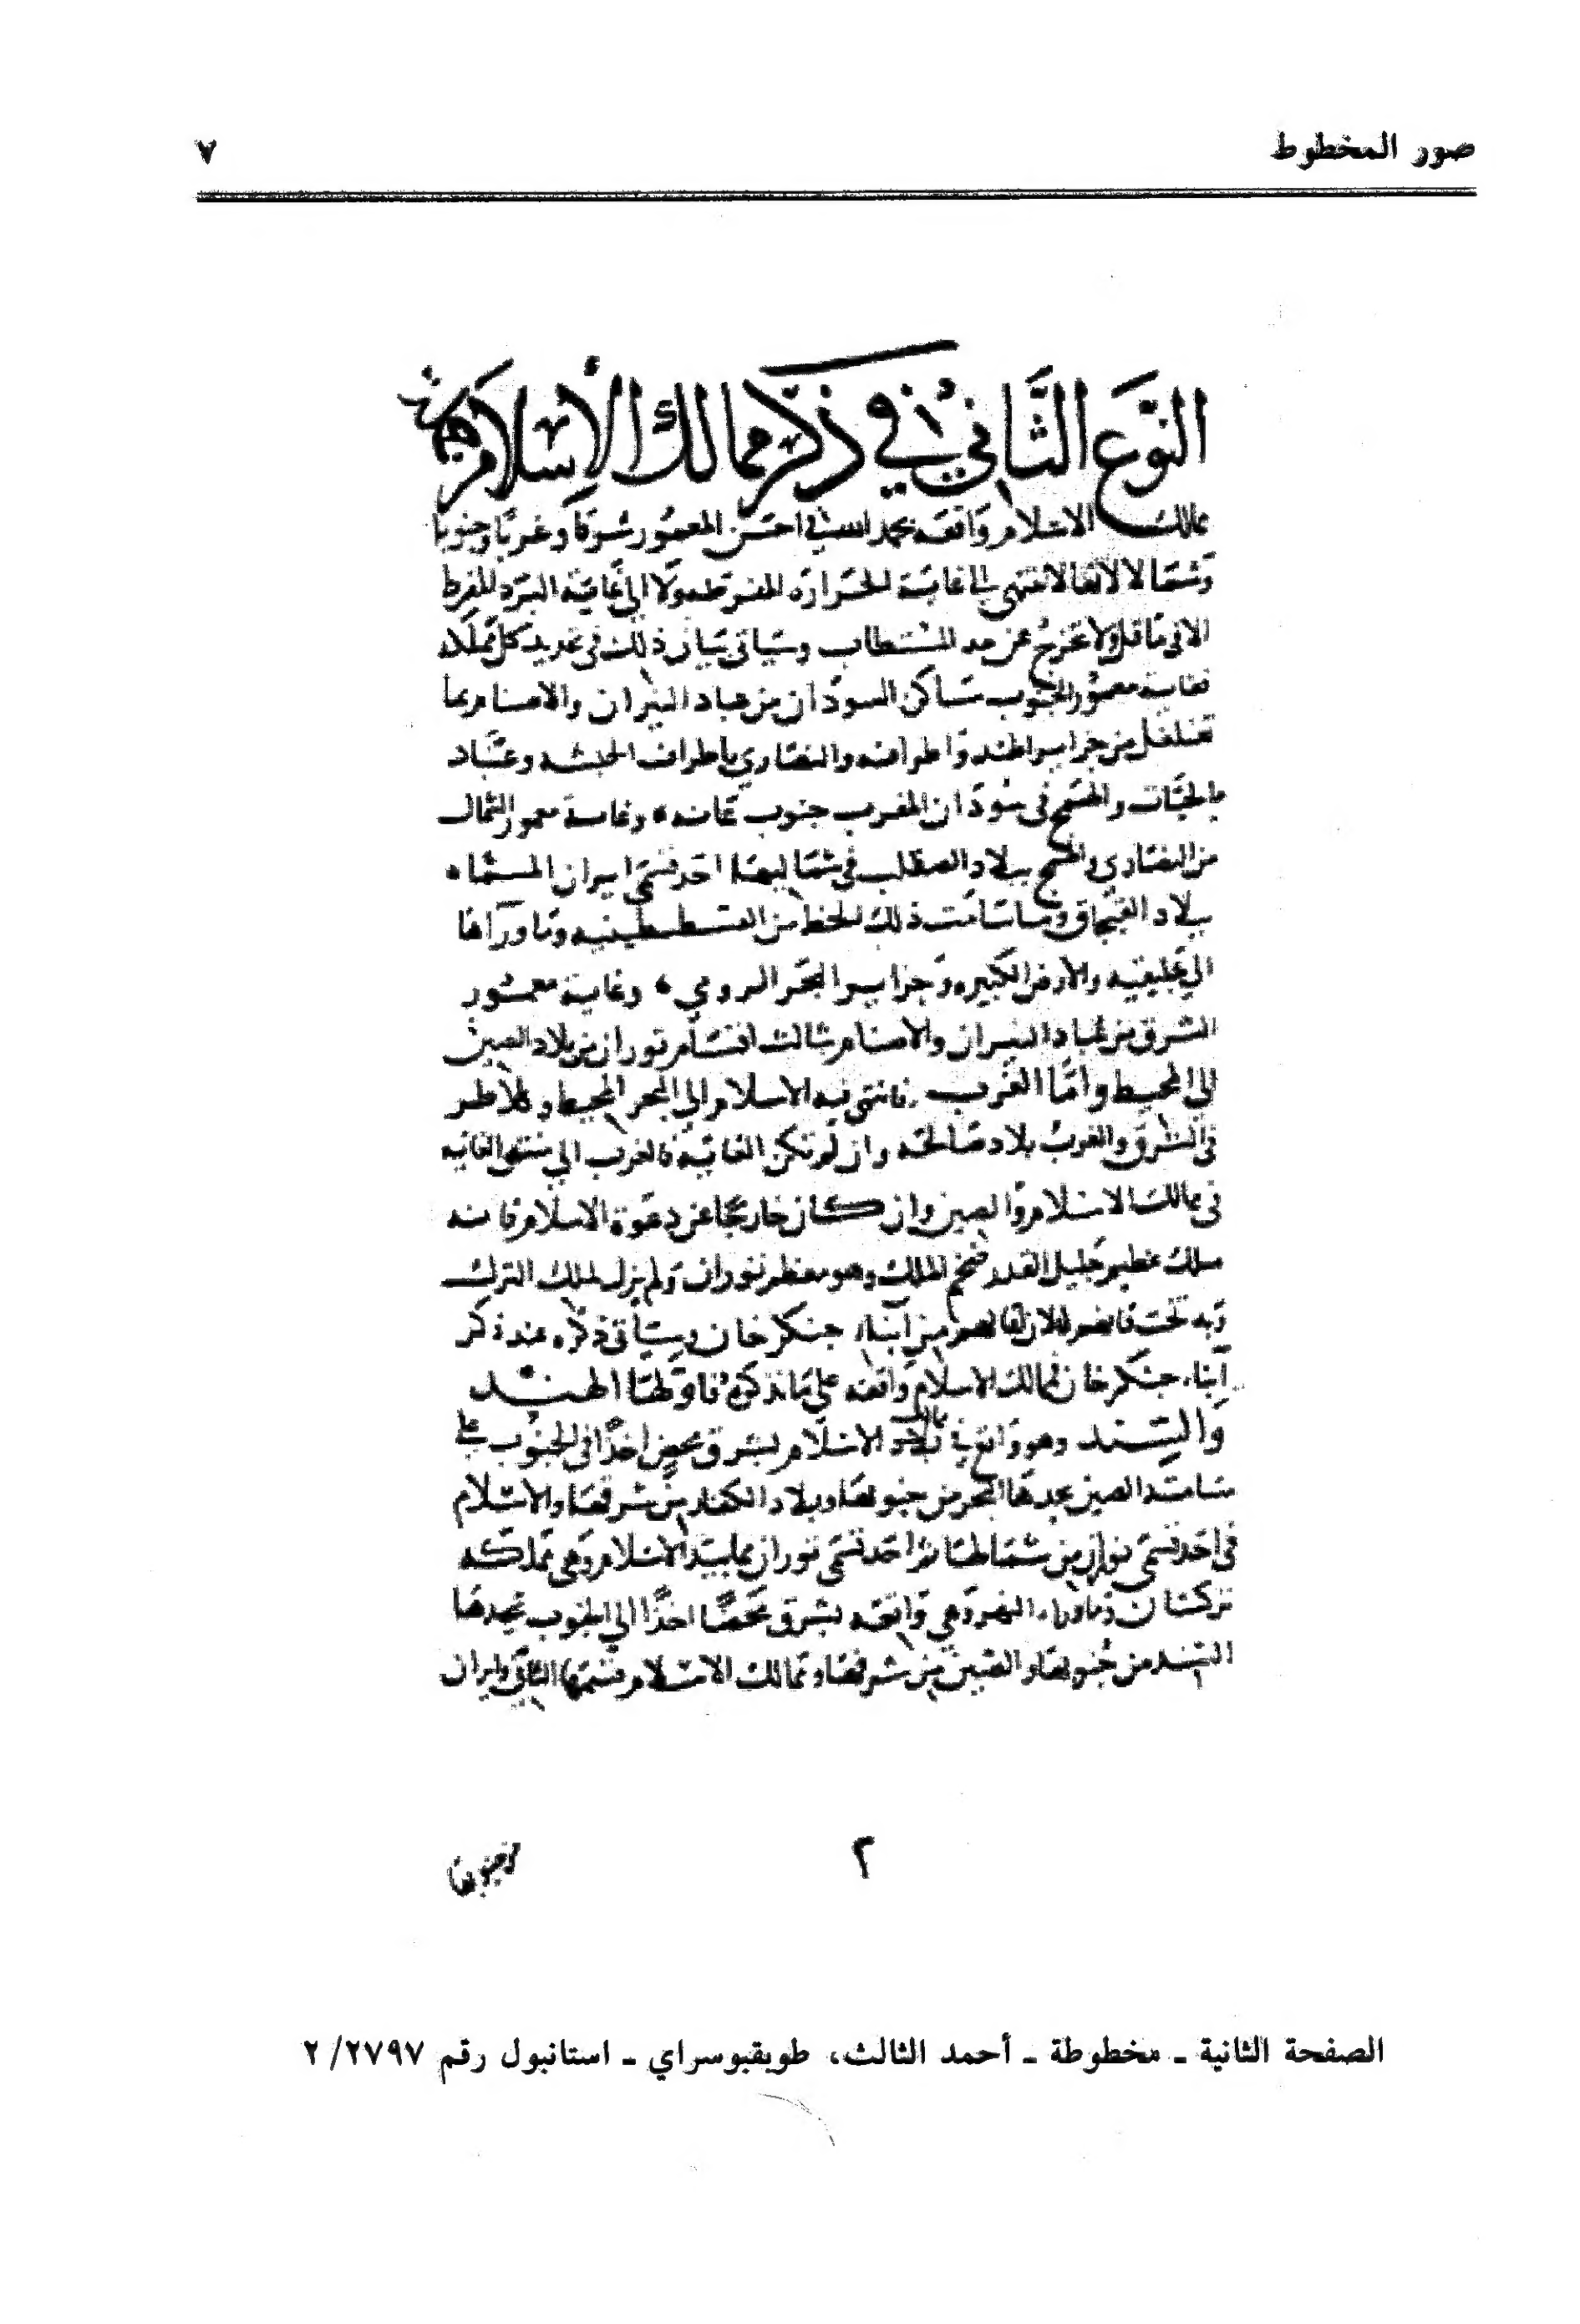 صور المخطوط
٧
النوع الثاني في ذكر ممالك الإسلام
ممالك الاسلام واقعه بحمد الله في احسن المعمور شرقا وغربا وجنوبا
وشمالا لانها لا تنتهي الى غاية الحرارة المفرطه ولا الى غاية البرد المفرط
الا في ما قل ولا تخرج عن حد المستطاب وسياتي بيان ذلك في تحديد كل مملكه
فغاية معمور الجنوب مساكن السودان من عباد النيران والاصنام بما
تغلغل من جزاير الهند واطرافه والنصاري باطراف الحبشه وعباد
الحيات والهمج في سودان المغرب جنوب غانه وغاية معمور الشمال
من النصاري والهمج ببلاد الصقلب في شماليها احد قسمي ايران المسماه
ببلاد القبجاق وما سامت ذلك الخط من القسطنطينيه وما وراها
الي جليقيه والارض الكبيره وجزاير البحر الرومي وغاية معمور
الشرق من عباد النيران والاصنام ثالث اقسام توران من بلاد الصين
الى المحيط واما الغرب فانتهي فيه الاسلام الي البحر المحيط وللاطر
في الشرق والغرب بلاد صالحه وان لم تكن الغايه فالغرب الي منتهى الغايه
في ممالك الاسلام والصين وان كان خارجا عن دعوة الاسلام فانه
ملك عظيم جليل القدر ضخم الملك وهو معظم توران ولم يزل لملك الترك
وبه تخت قانهم الان القايم من ابناء جنكز خان وسياتي ذكره عند ذكر
ابناء جنكز خان فممالك الاسلام واقعه على ما نذكره فاولها الهند
والسند وهو واقع في ممالك بلاد الاسلام بشرق محض اخذا في الجنوب على
مسامتة الصين يحدها البحر من جنوبها وبلاد الكفار من شرقها والاسلام
في احد قسمي توران من شمالها ثم احد قسمي توران مما بيد الاسلام وهي مملكه
تركستان وما وراء النهر وهي واقعه بشرق محضا اخذا الي الجنوب يحدها
السند من جنوبها والصين من شرقها وممالك الاسلام قسمها الثاني وايران
٢
من جنوبها
الصفحة الثانية ـ مخطوطة ـ أحمد الثالث، طوبقبوسراي ـ استانبول رقم ٢/٢٧٩٧